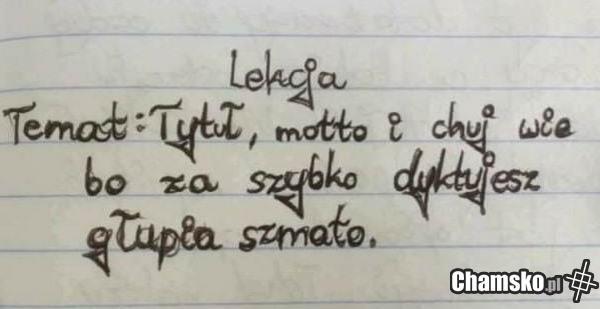 Lekcja
Temat: Tytuł, motto i chuj wie
bo za szybko dyktujesz
głupia szmato.
Chamsko.pl